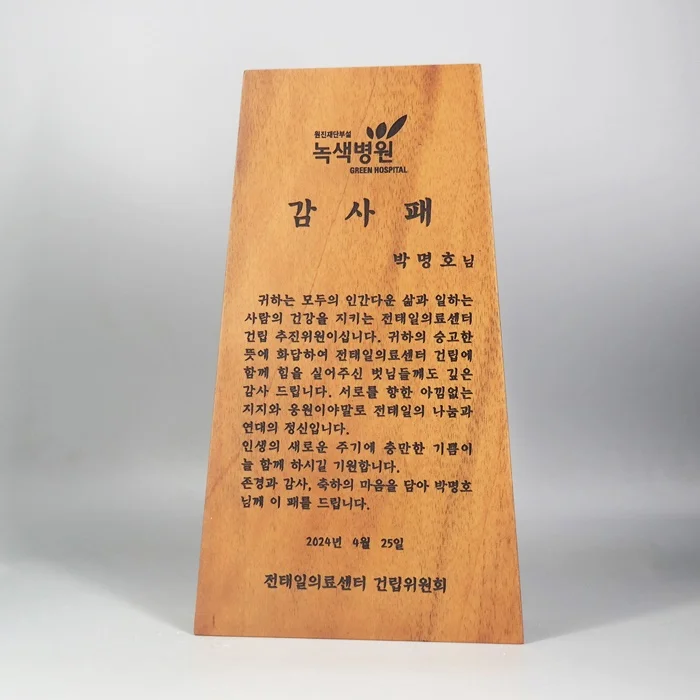 원진재단부설
녹색병원
GREEN HOSPITAL
감사패
박명호님
귀하는 모두의 인간다운 삶과 일하는
사람의 건강을 지키는 전태일의료센터
건립 추진위원이십니다. 귀하의 숭고한
뜻에 화답하여 전태일의료센터 건립에
함께 힘을 실어주신 벗님들께도 깊은
감사 드립니다. 서로를 향한 아낌없는
지지와 응원이야말로 전태일의 나눔과
연대의 정신입니다.
인생의 새로운 주기에 충만한 기쁨이
늘 함께 하시길 기원합니다.
존경과 감사, 축하의 마음을 담아 박명호
님께 이 패를 드립니다.
2024년 4월 25일
전태일의료센터 건립위원회